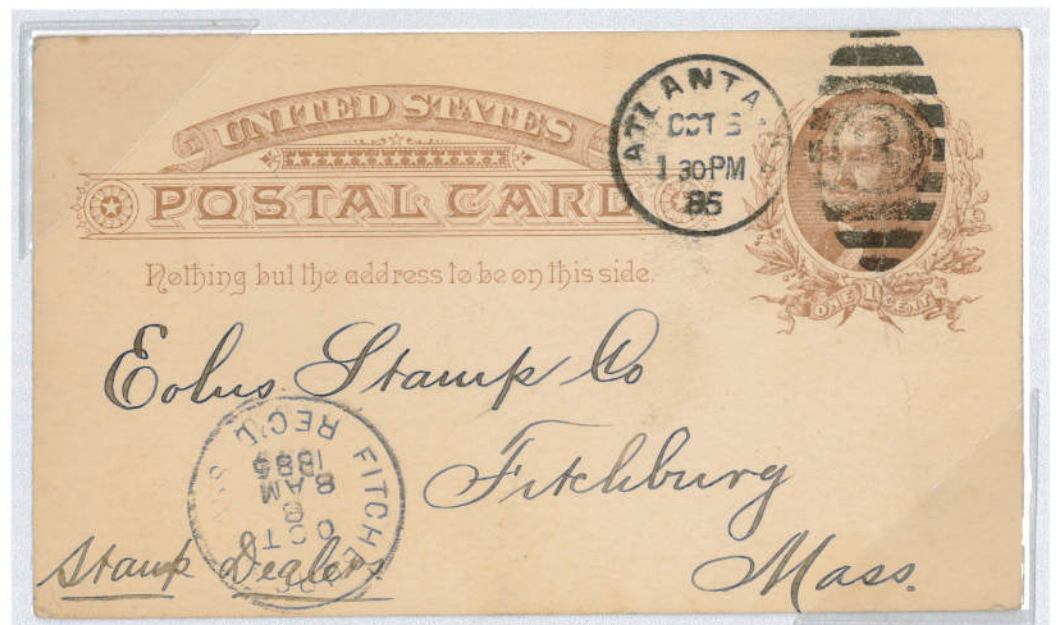 UNITED STATES
POSTAL CARD
Nothing but the address to be on this side.
ATLANTA
OCT
1 30 PM
85
ONE 1 CENT
Eolus Stamp Co
Fitchburg
Mass.
Stamp Dealers
REC'D
1885
8 AM
OCT